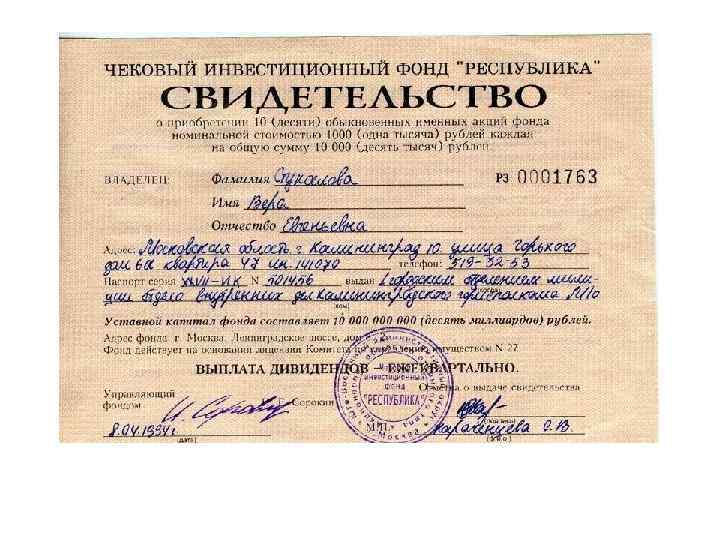 ЧЕКОВЫЙ ИНВЕСТИЦИОННЫЙ ФОНД "РЕСПУБЛИКА"
СВИДЕТЕЛЬСТВО
о приобретении 10 (десяти) обыкновенных именных акций фонда
номинальной стоимостью 1000 (одна тысяча) рублей каждая
на общую сумму 10 000 (десять тысяч) рублей
ВЛАДЕЛЕЦ: Фамилия РЗ 0001763
Имя Вера
Отчество Евгеньевна
Адрес: Московская область г. Калининград ул. улица Горького
дом квартира 47 ин. 141070 телефон: 519-32-53
Паспорт серия XXVII-ИК N 501456 выдан Городским отделением мили-
ции отдела внутренних дел Калининградского горисполкома
Уставной капитал фонда составляет 10 000 000 000 (десять миллиардов) рублей.
Адрес фонда: г. Москва, Ленинградское шоссе, дом
Фонд действует на основании лицензии Комитета по управлению имуществом N 27
ВЫПЛАТА ДИВИДЕНДОВ – ЕЖЕКВАРТАЛЬНО.
Управляющий
фондом Сорокин
Отметка о выдаче свидетельства
ИНВЕСТИЦИОННЫЙ
ФОНД
"РЕСПУБЛИКА"
Москва
М.П.
8.04.1994г.
(дата)
Караченцева О.В.
(Ф.И.О.)